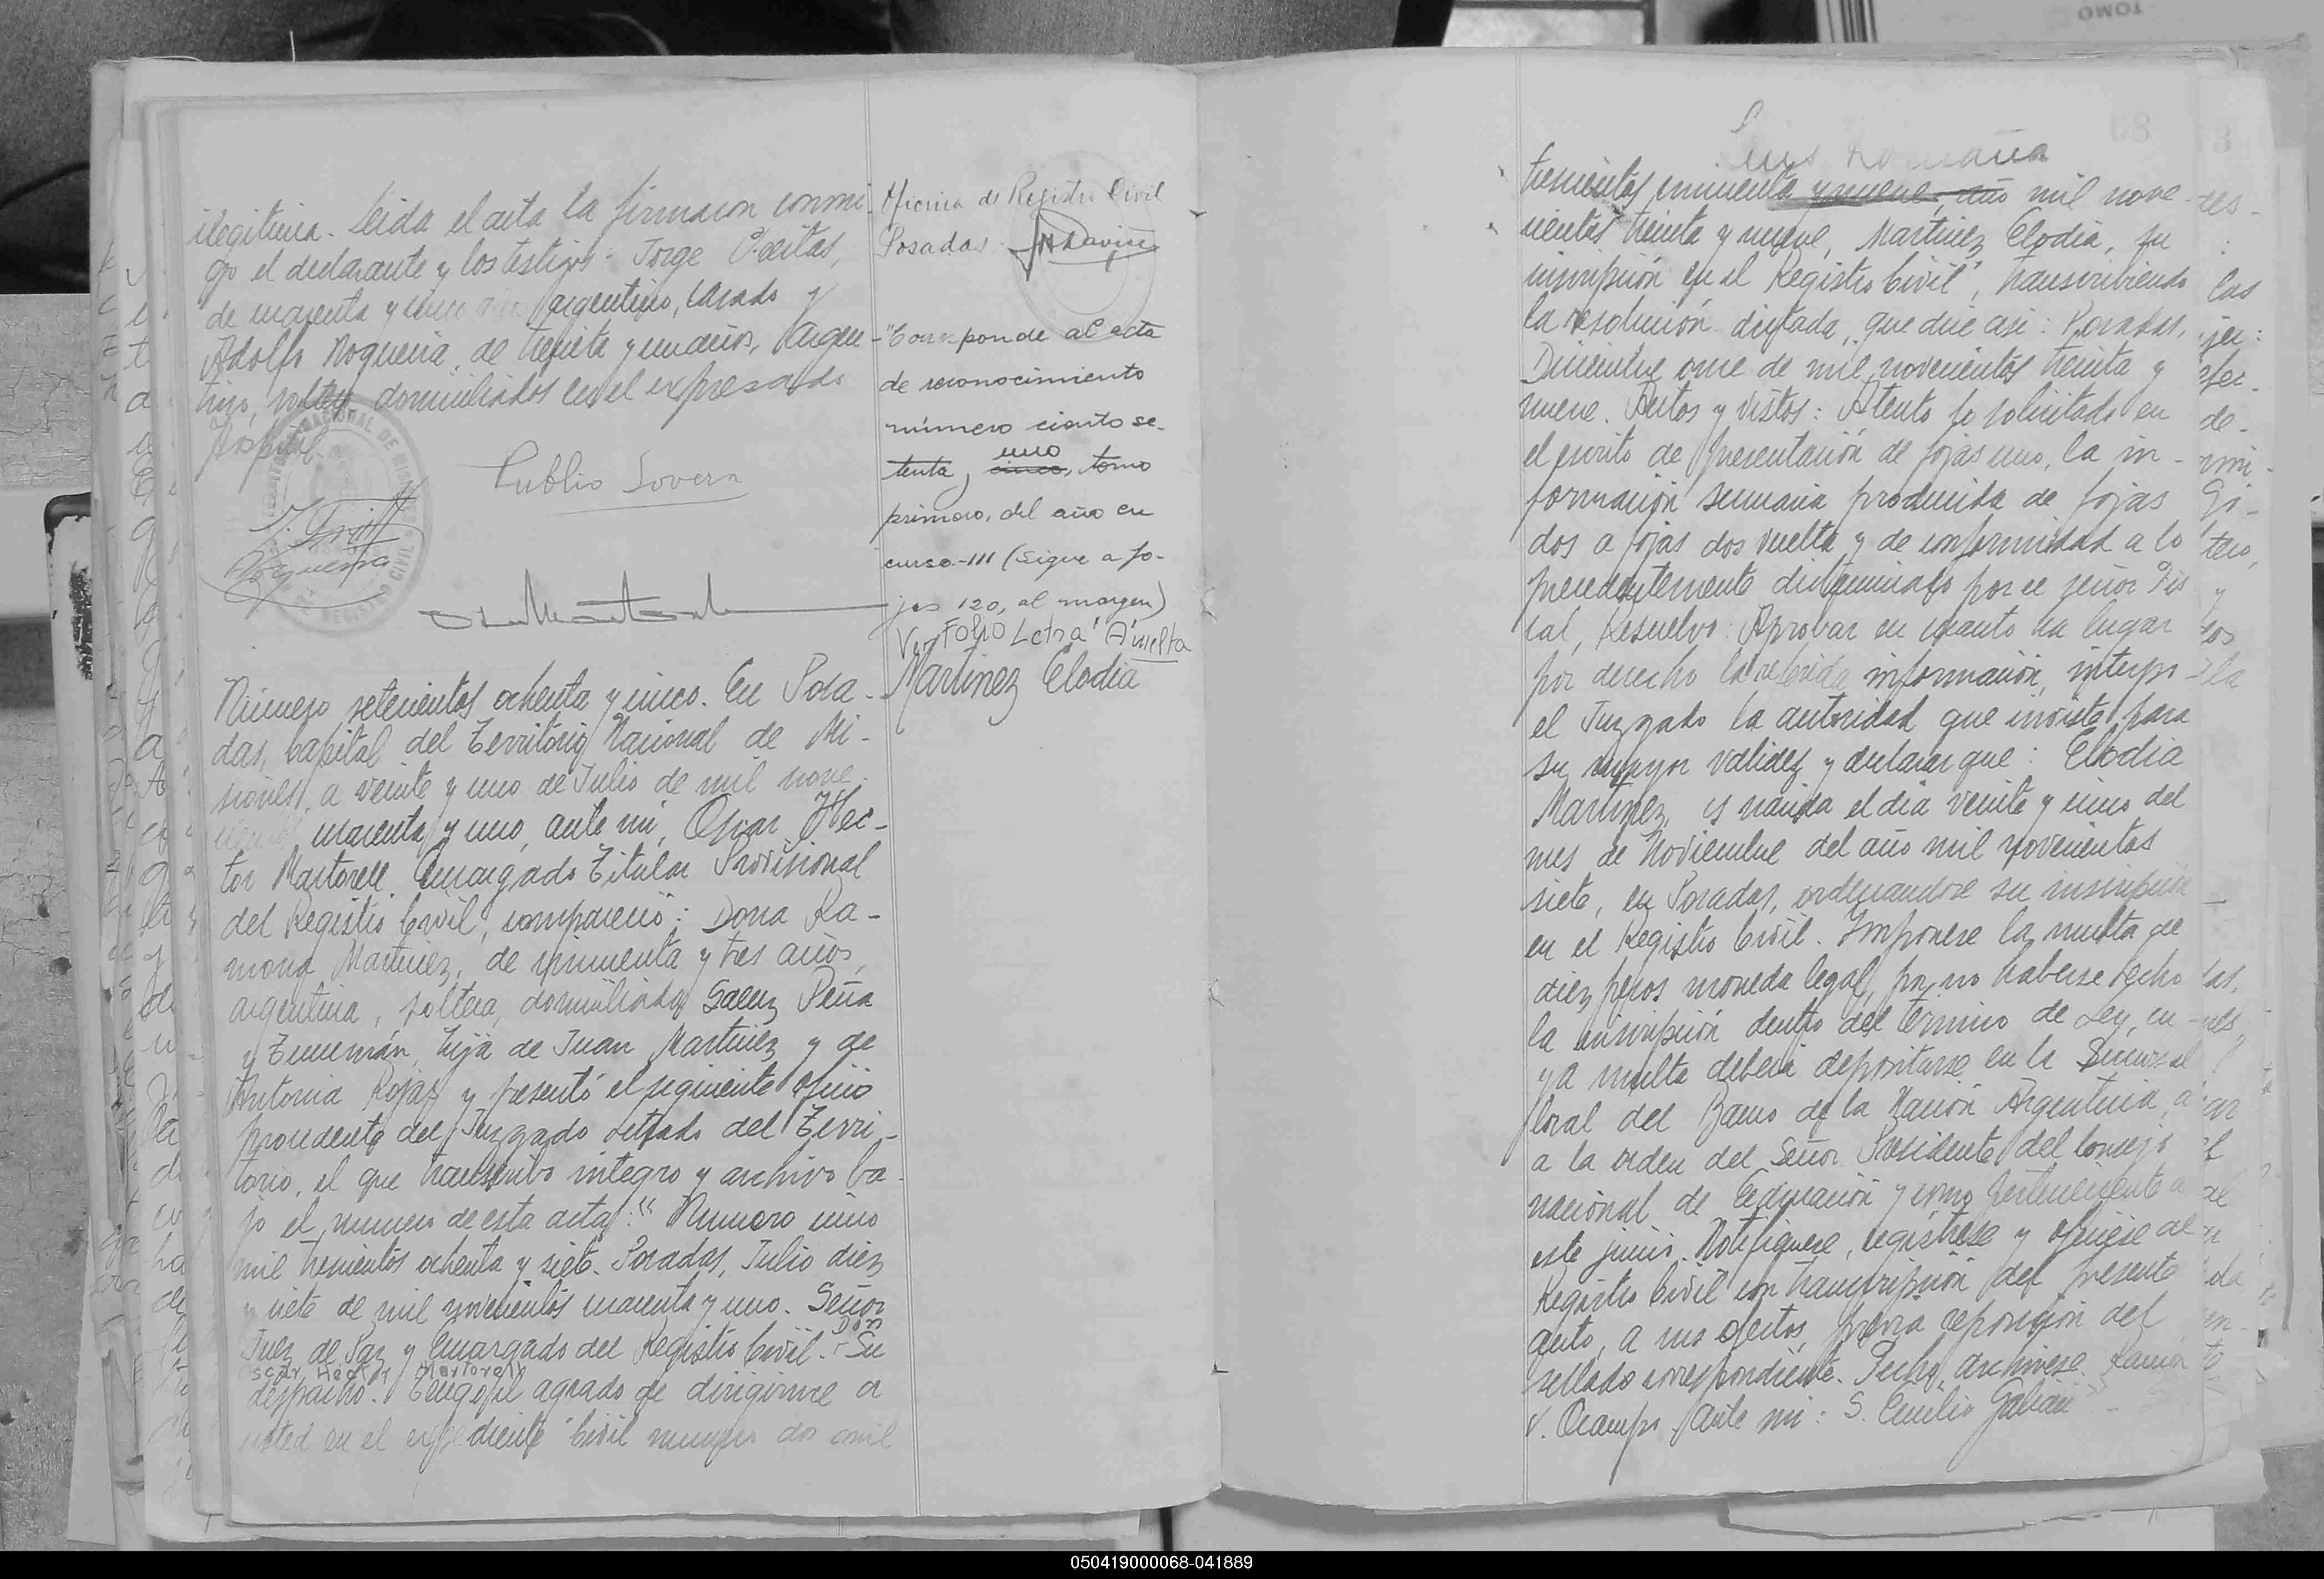 ilegitima. Leida el acta la firmaron conmi-
go el declarante y los testigos: Jorge
de cuarenta y cinco años argentino, casado y
Adolfo Noguera, de treinta y un años, Argen-
tino, soltero, domiciliados en el expresado
Hospital.
Publio Lovera
Noguera
Oficina de Registro Civil
Posadas.
"Corresponde al acta
de reconocimiento
número ciento se-
uno
tenta y cinco, tomo
primero, del año en
curso.-111 (Sigue a fo-
jas 120, al margen)
Ver Folio Letra "A" vuelta
Martinez Elodia
Número setecientos ochenta y cinco. En Posa-
das, Capital del Territorio Nacional de Mi-
siones, a veinte y uno de Julio de mil nove-
cientos cuarenta y uno, ante mi, Oscar Hec-
tor Martorell Encargado Titular Provisional
del Registro Civil, compareció: Dona Ra-
mona Martinez, de cincuenta y tres años,
argentina, soltera, domiciliada Saenz Peña
y Tucumán, hija de Juan Martinez y de
Antonia Rojas y presentó el siguiente oficio
procedente del Juzgado Letrado del Terri-
torio, el que transcribo integro y archivo ba-
jo el numero de esta acta: "Numero cinco
mil trescientos ochenta y siete. Posadas, Julio diez
y siete de mil novecientos cuarenta y uno. Señor
Don
Juez de Paz y Encargado del Registro Civil. - Su
Oscar Hector Martorell
despacho. Tengo el agrado de dirigirme a
usted en el expediente Civil numero dos mil
Luis Romaña
trescientos cincuenta y nueve, año mil nove-
cientos treinta y nueve, Martinez Elodia, su
inscripción en el Registro Civil", transcribiendo
la resolución dictada, que dice asi: Posadas,
Diciembre once de mil novecientos treinta y
nueve. Autos y Vistos: Atento lo solicitado en
el escrito de presentación de fojas uno, la in-
formación sumaria producida de fojas
dos a fojas dos vuelta y de conformidad a lo
precedentemente dictaminado por el señor Fis
cal, Resuelvo: Aprobar en cuanto ha lugar
por derecho la referida información, interpo-
el Juzgado la autoridad que inviste para
su mayor validez y declarar que: Elodia
Martinez, es nacida el dia veinte y cinco del
mes de Noviembre del año mil novecientos
siete, en Posadas, ordenandose su inscripción
en el Registro Civil. Imponese la multa de
diez pesos moneda legal, por no haberse hecho
la inscripción dentro del término de Ley, cu-
ya multa deberá depositarse en la Sucursal
local del Banco de la Nación Argentina, a
a la orden del Señor Presidente del Consejo
nacional de Educación y como perteneciente a
este juicio. Notifiquese, registrese y oficiese al
Registro Civil con transcripción del presente
auto, a sus efectos, previa reposición del
sellado correspondiente. Fecho, archivese. Ramon
V. Ocampo. Ante mi: S. Emilio Galian"
TOMO
050419000068-041889